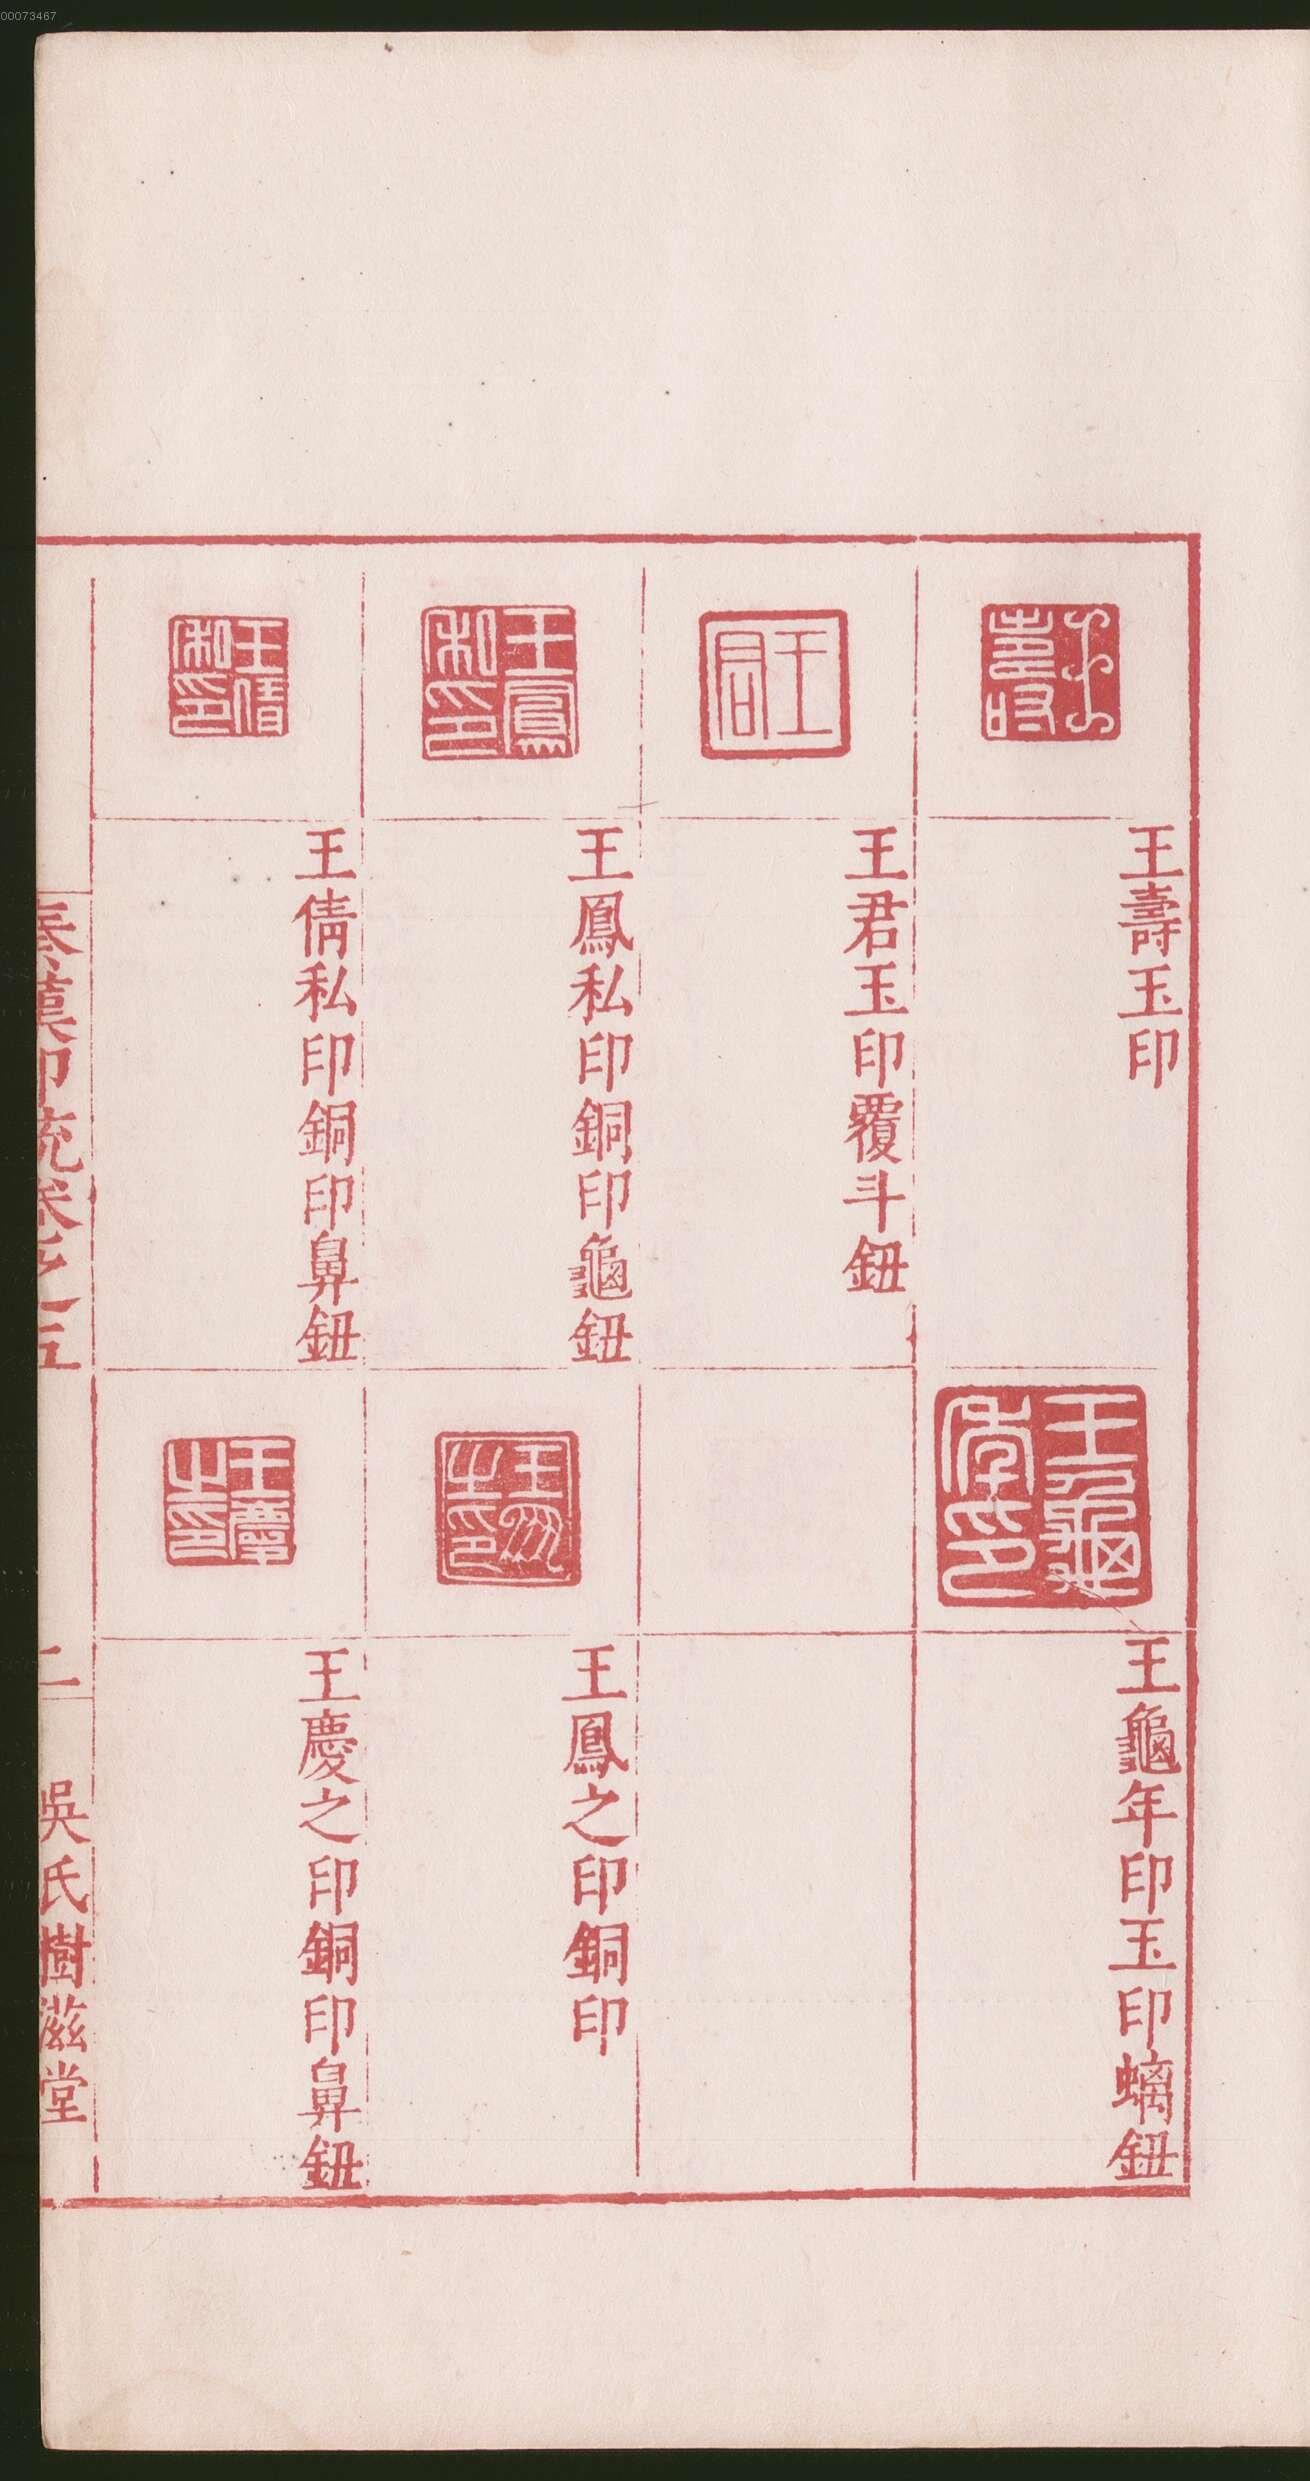 00073467
王壽
王壽玉印
王龜年印
王龜年印玉印螭鈕
王君
王君玉印覆斗鈕
王鳳私印
王鳳私印銅印龜鈕
王鳳之印
王鳳之印銅印
王倩私印
王倩私印銅印鼻鈕
王慶之印
王慶之印銅印鼻鈕
秦漢印統卷之五
二
吳氏樹滋堂